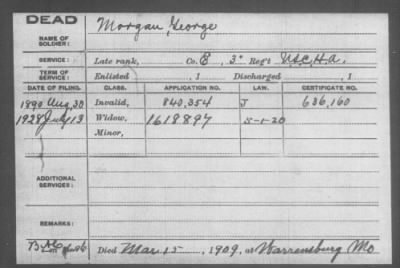 DEAD
NAME OF SOLDIER: Morgan, George
SERVICE: Late rank, Co. E, 3" Reg't U.S.C.H.A.
TERM OF SERVICE: Enlisted , 1 Discharged , 1
DATE OF FILING. CLASS. APPLICATION NO. LAW. CERTIFICATE NO.
1890 Aug. 30 Invalid, 840,354 J 636,160
1928 July 13 Widow, 1618897 5-1-20
Minor,
ADDITIONAL SERVICES:
REMARKS:
Died Mar 15, 1909, at Warrensburg Mo